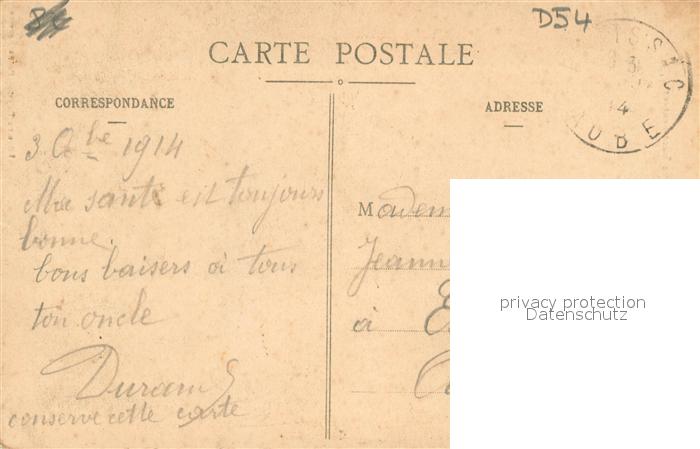 D54
CARTE POSTALE
CORRESPONDANCE
ADRESSE
AUDE
3 8bre 1914
Ma santé est toujours
bonne.
bons baisers à tous
ton oncle
Durand
conserve cette carte
M
Jeann
à
privacy protection
Datenschutz